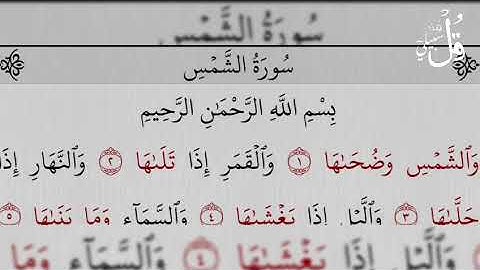 سُورَةُ الشَّمْسِ
سُورَةُ الشَّمْسِ
بِسْمِ اللَّهِ الرَّحْمَٰنِ الرَّحِيمِ
وَٱلشَّمْسِ وَضُحَىٰهَا ١ وَٱلْقَمَرِ إِذَا تَلَىٰهَا ٢ وَٱلنَّهَارِ إِذَا
جَلَّىٰهَا ٣ وَٱلَّيْلِ إِذَا يَغْشَىٰهَا ٤ وَٱلسَّمَآءِ وَمَا بَنَىٰهَا ٥
وَٱلَّيْلِ إِذَا يَغْشَىٰهَا ٤ وَٱلسَّمَآءِ وَمَا
قُل